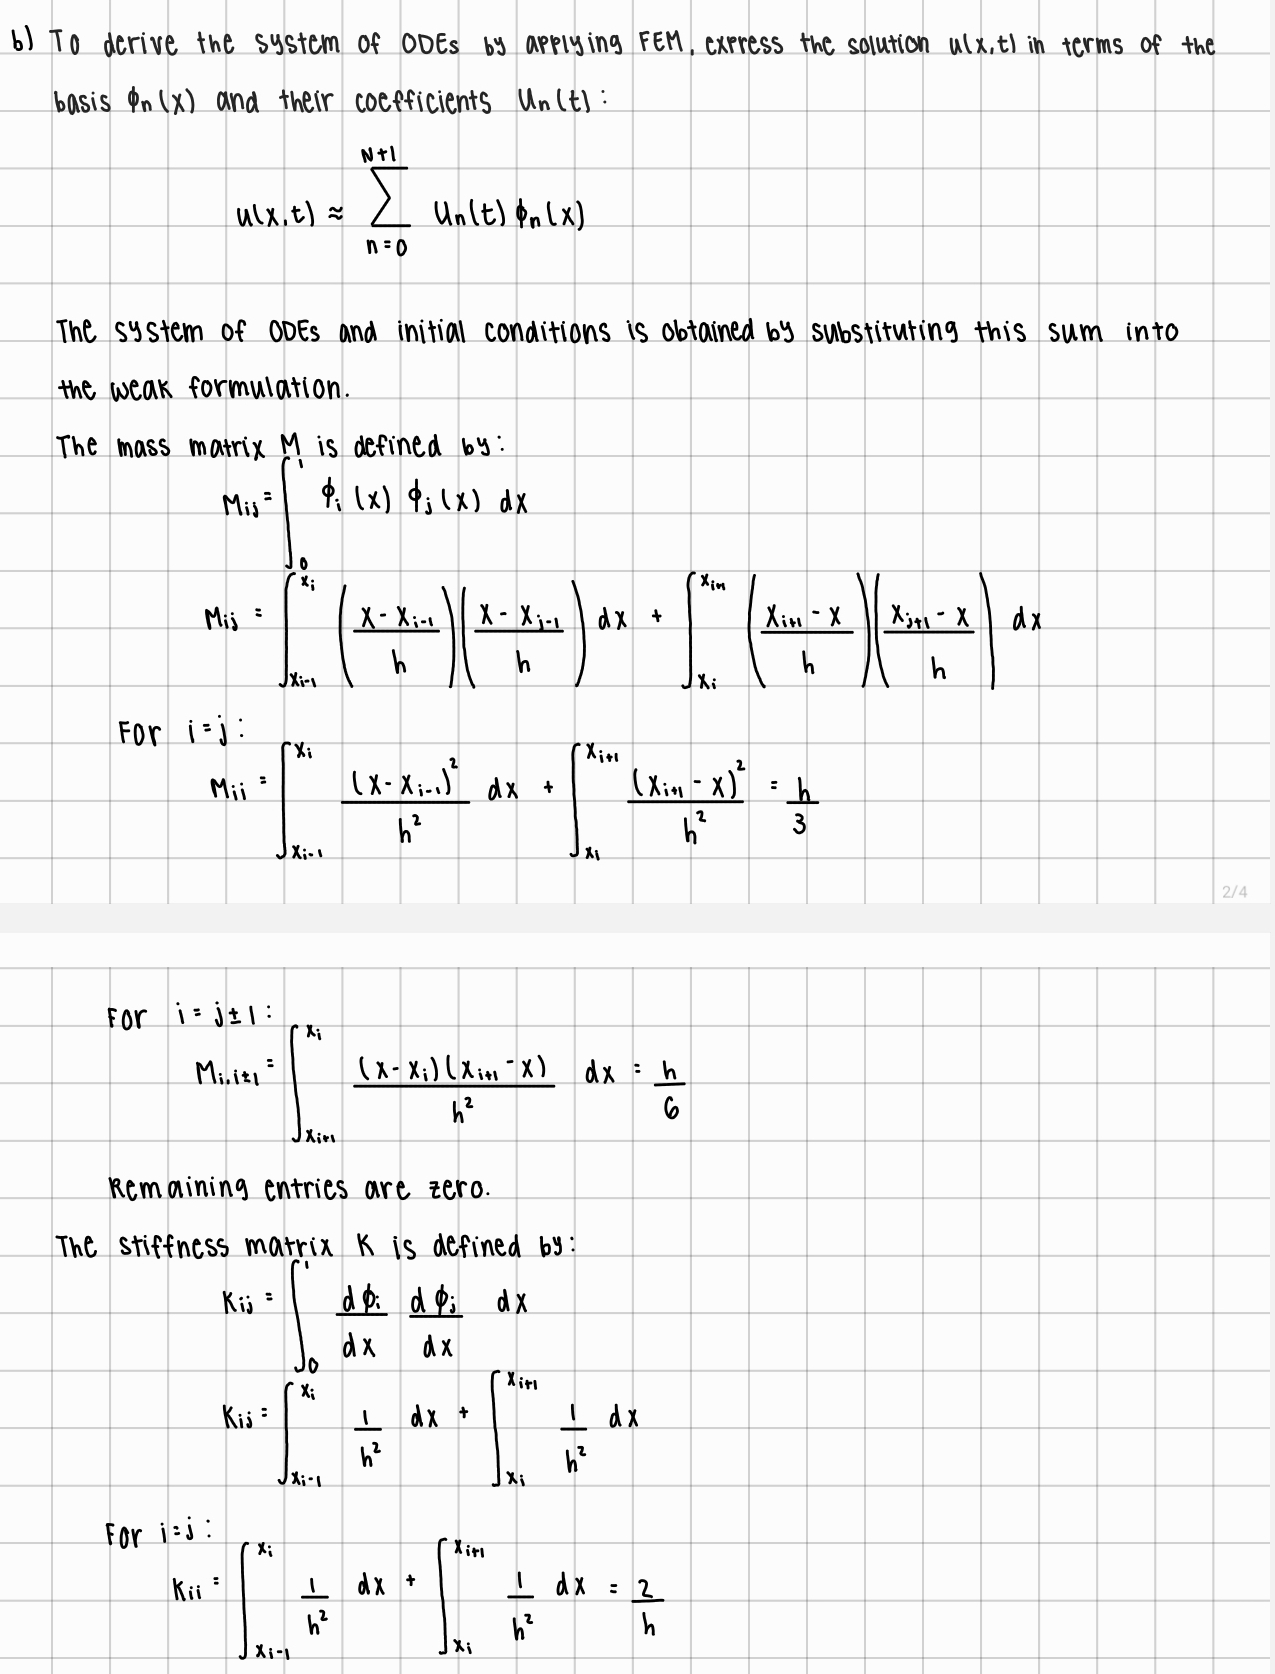 b) To derive the system of ODEs by applying FEM, express the solution u(x,t) in terms of the
basis ϕn(x) and their coefficients Un(t):
u(x,t) ≈ ∑_{n=0}^{N+1} Un(t) ϕn(x)
The system of ODEs and initial conditions is obtained by substituting this sum into
the weak formulation.
The mass matrix M is defined by:
Mij = ∫_0^1 ϕi (x) ϕj (x) dx
Mij = ∫_{xi-1}^{xi} ((x - xi-1)/h) ((x - xj-1)/h) dx + ∫_{xi}^{xi+1} ((xi+1 - x)/h) ((xj+1 - x)/h) dx
For i=j:
Mii = ∫_{xi-1}^{xi} (x - xi-1)²/h² dx + ∫_{xi}^{xi+1} (xi+1 - x)²/h² = h/3
2/4
For i = j±1:
Mi,i±1 = ∫_{xi+1}^{xi} (x - xi)(xi+1 - x)/h² dx = h/6
Remaining entries are zero.
The stiffness matrix K is defined by:
Kij = ∫_0^1 dϕi/dx dϕj/dx dx
Kij = ∫_{xi-1}^{xi} 1/h² dx + ∫_{xi}^{xi+1} 1/h² dx
For i=j:
Kii = ∫_{xi-1}^{xi} 1/h² dx + ∫_{xi}^{xi+1} 1/h² dx = 2/h